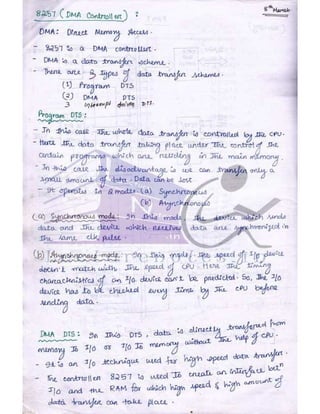 8257 (DMA Controller) :
5th March
DMA: Direct Memory Access.
- 8257 is a DMA controller.
- DMA is a data transfer scheme.
- There are 3 types of data transfer schemes.
(1) Program DTS
(2) DMA DTS
3 DTS.
Program DTS :
- In this case the whole data transfer is controlled by the CPU.
- Here the data transfer taking place under the control of the
certain programs which are residing in the main memory.
- In this case the disadvantage is we can transfer only a
small amount of data. Data can be lost
- It operates in 2 modes. (a) Synchronous
(b) Asynchronous
(a) Synchronous mode: In this mode the device which sends
data and the device which receives data are synchronized in
the same clk pulse.
(b) Asynchronous mode: In this mode, the speed of I/p device
doesn't match with the speed of CPU. Here the timing
characteristics of an I/o device can't be predicted. So, the I/o
device has to be checked every time by the CPU before
sending data.
DMA DTS : In this DTS, data is directly transferred from
memory to I/o or I/o to memory without the help of CPU.
- It is an I/o technique used for high speed data transfer.
- The controller 8257 is used to create an interface betn
I/o and the RAM for which high speed & high amount of
data transfer can take place.